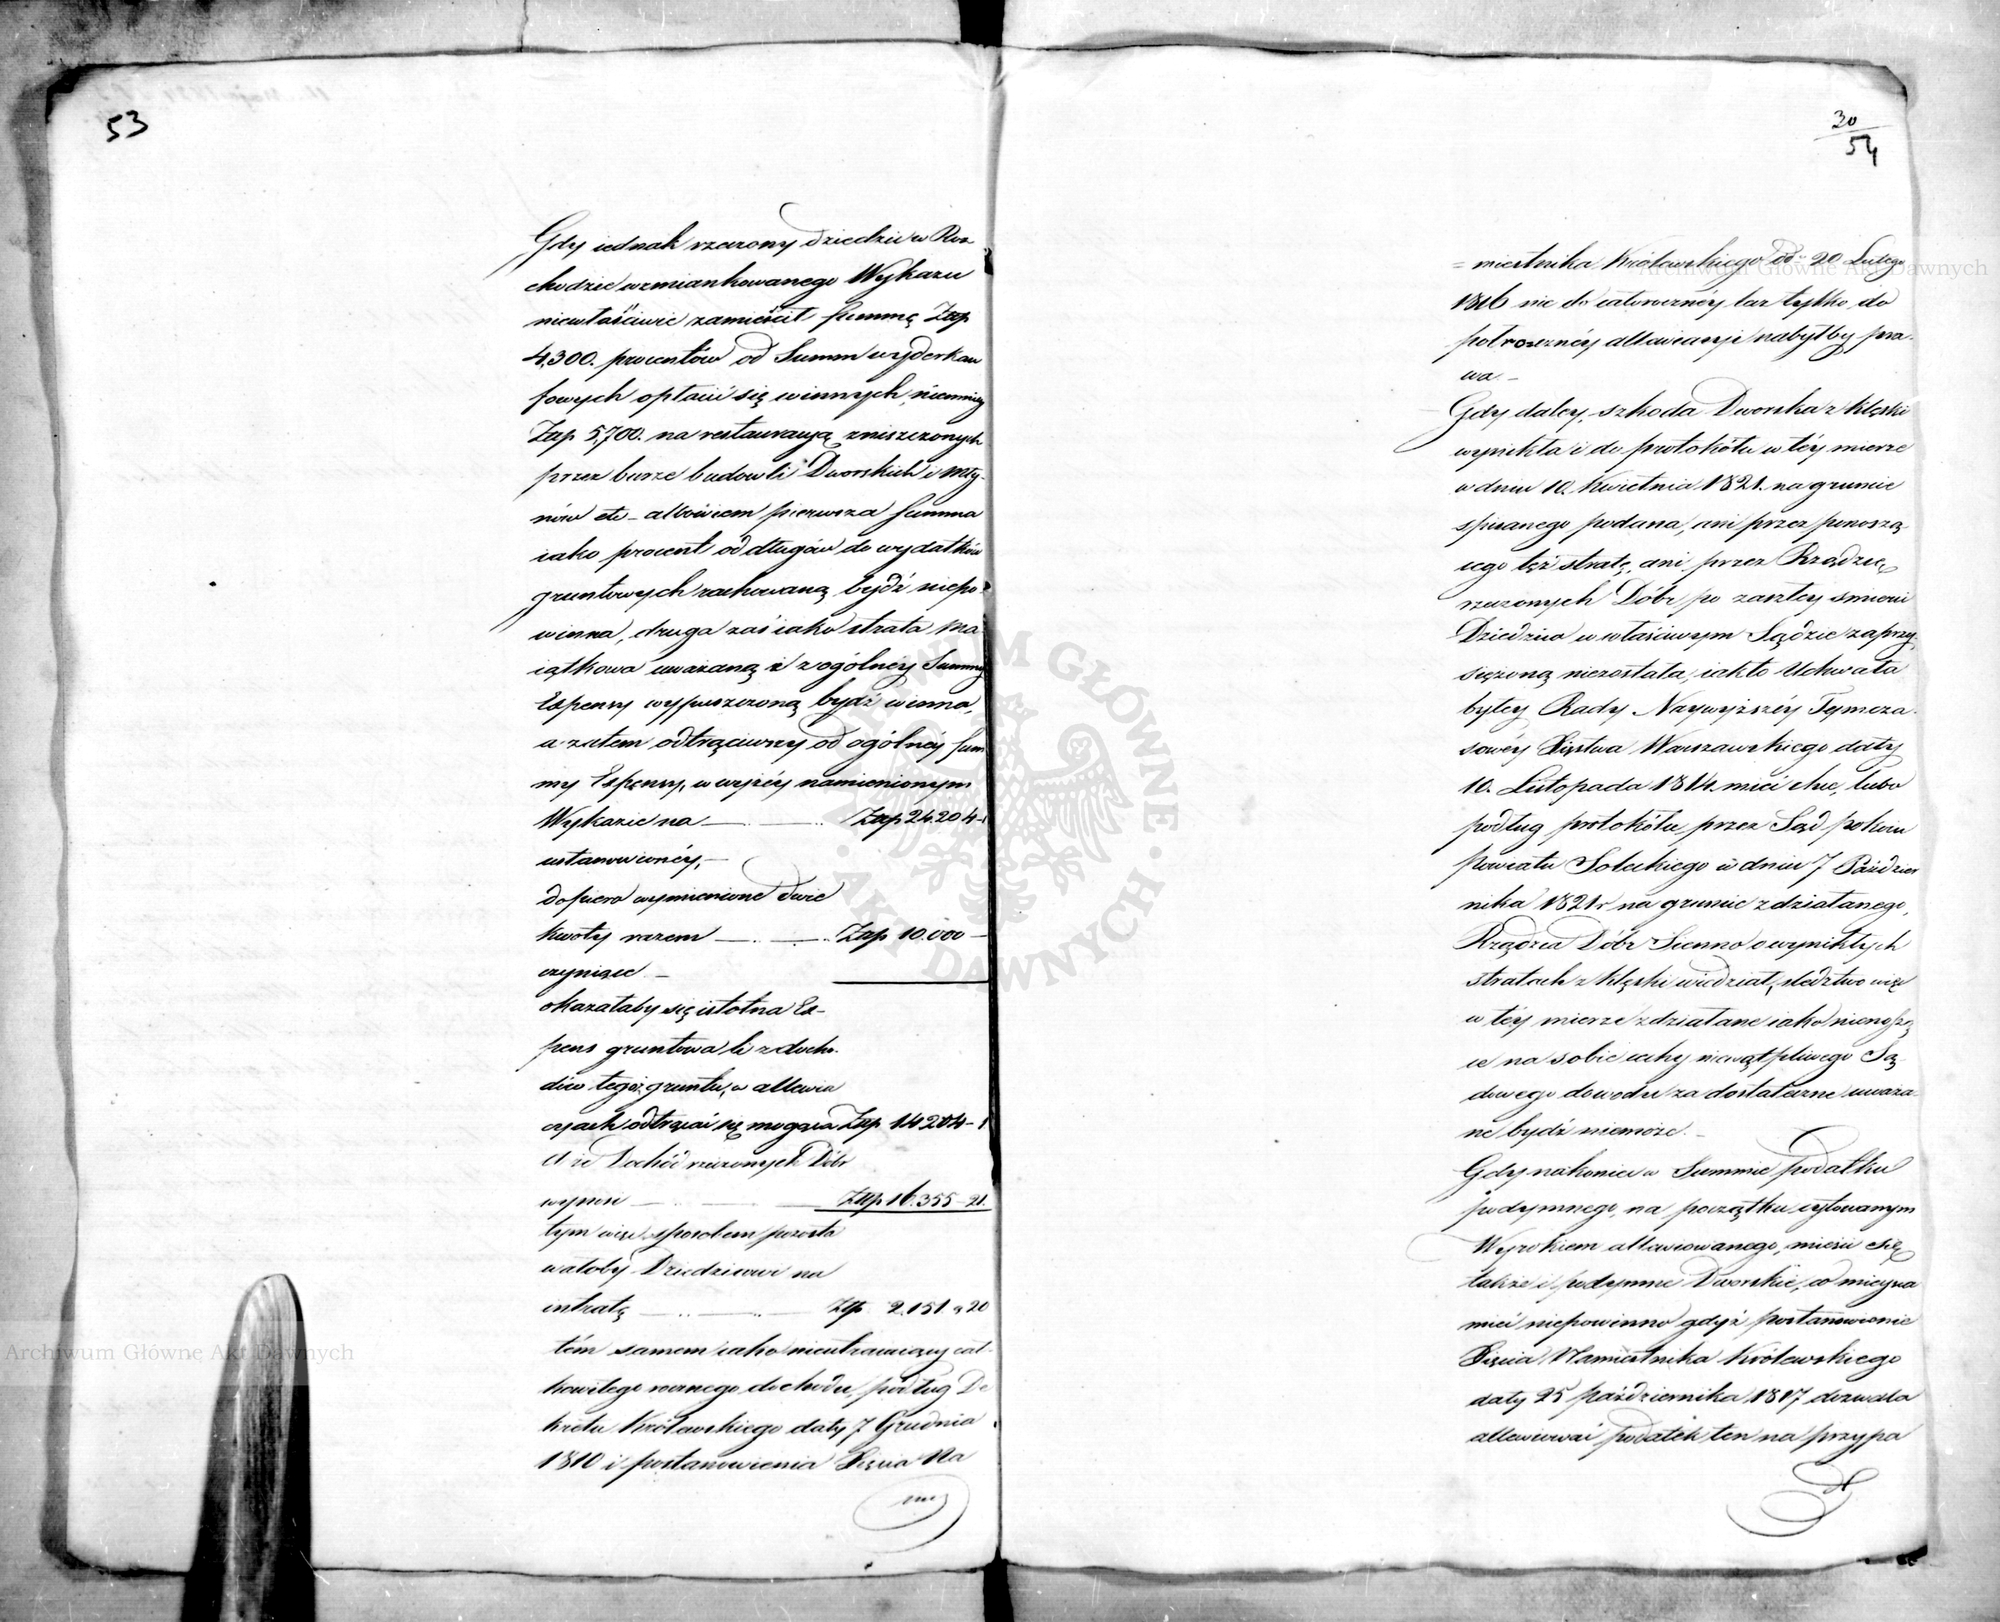 53
Gdy iednak rzeczony Dziedzic w Roz
chodzie wzmiankowanego Wykazu
niewłaściwie zamieścił Summę Złp
4,300. procentów od Summ wyderkau
fowych opłacić się winnych, niemniey
Złp 5,700. na restauracyą zniszczonych
przez burze budowli Dworskich i Mły-
nów etc – albowiem pierwsza Summa
iako procent od długów do wydatków
gruntowych rachowaną bydź niepo-
winna, druga zaś iako strata Ma-
iątkowa uważaną i z ogólney Summy
Expensy wypuszczoną bydź winna,
a zatem odtrąciwszy od ogólnéy Sum
my Expensy, w wyżéy namienionym
Wykazie na — Złp 24.204-1
ustanowionéy, –
dopiero wymienione dwie
kwoty razem — Złp 10.000 –
czyniące –
okazałaby się istotna Ex-
pens gruntowa li z docho-
dów tegoż gruntu, w allewia
cyach odtrącać się mogąca Złp 14204-1
A że Dochód rzeczonych Dóbr
wynosi — Złp 16.355-21.
tym więc sposobem pozosta
wałoby Dziedzicowi na
intratę — Złp 2.151 „ 20
tém samem iako nieutracaiący cał-
kowitego rocznego dochodu, podług De
kretu Królewskiego daty 7 Grudnia
1810 i postanowienia Xięcia Na
30
54
= miestnika Królewskiego dd° 20 Lutego
1816 nie do całorocznéy lecz tylko do
półroczney allewiacyi nabyłby pra-
wa. –
Gdy daley, szkoda Dworska z klęski
wynikła i do protokółu w téy mierze
w dniu 10. Kwietnia 1821. na gruncie
spisanego podana, ani przez ponoszą
cego też stratę, ani przez Rządzcę
rzeczonych Dóbr po zaszłey śmierci
Dziedzica w właściwym Sądzie zaprzy-
siężoną niezostała, iak to Uchwała
byłey Rady Naywyższéy Tymcza-
sowéy Xięstwa Warszawskiego daty
10. Listopada 1814. mieć chce, lubo
podług protokółu, przez Sąd pokoiu
Powiatu Soleckiego w dniu 7 Paździer
nika 1821r na gruncie zdziałanego,
Rządzca Dóbr Sienno o wynikłych
stratach z klęski wiedział, śledztwo więc
w téy mierze zdziałane iako nienoszą
ce na sobie cechy niewątpliwego Są-
dowego dowodu za dostateczne uważa-
ne bydź niemoże. –
Gdy nakoniec w Summie podatku
podymnego, na początku cytowanym
Wyrokiem allewiowanego, mieści się
także i podymne Dworskie, co mieysca
mieć niepowinno gdyż postanowienie
Xięcia Namiestnika Królewskiego
daty 25 Października 1817 dozwala
allewiować podatek ten na przypa
Archiwum Główne Akt Dawnych
Archiwum Główne Akt Dawnych
ARCHIWUM GŁÓWNE · AKT DAWNYCH ·